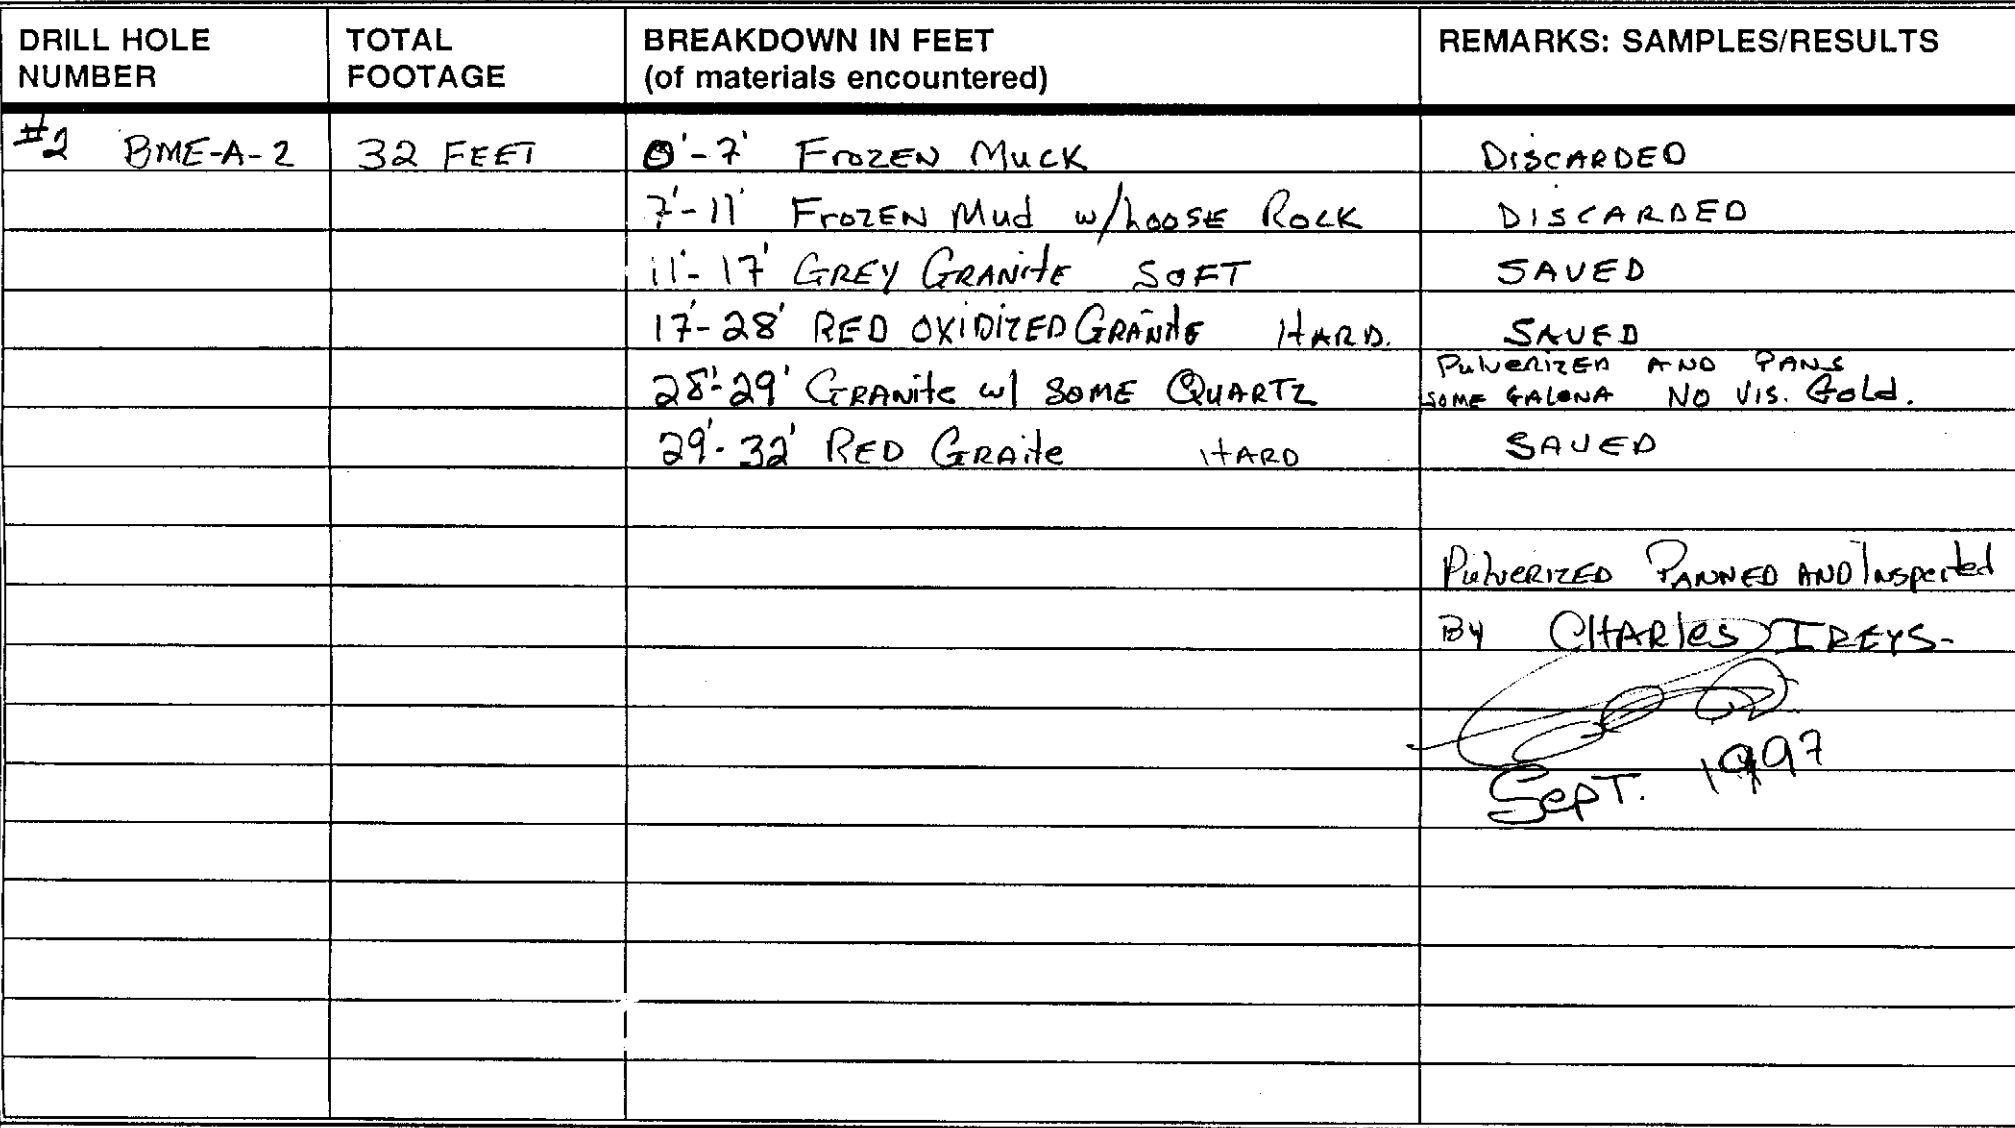 DRILL HOLE NUMBER TOTAL FOOTAGE BREAKDOWN IN FEET (of materials encountered) REMARKS: SAMPLES/RESULTS
#2 BME-A-2 32 FEET 0'-7' FROZEN MUCK DISCARDED
7'-11' FROZEN Mud w/LOOSE ROCK DISCARDED
11'-17' GREY GRANITE SOFT SAVED
17'-28' RED OXIDIZED GRANITE HARD. SAVED
28'-29' GRANITE w/ SOME QUARTZ PULVERIZED AND PANS
SOME GALONA NO VIS. GOLD.
29'-32' RED GRAITE HARD SAVED
PULVERIZED PANNED AND Inspected
By CHARLES IREYS-
SEPT. 1997